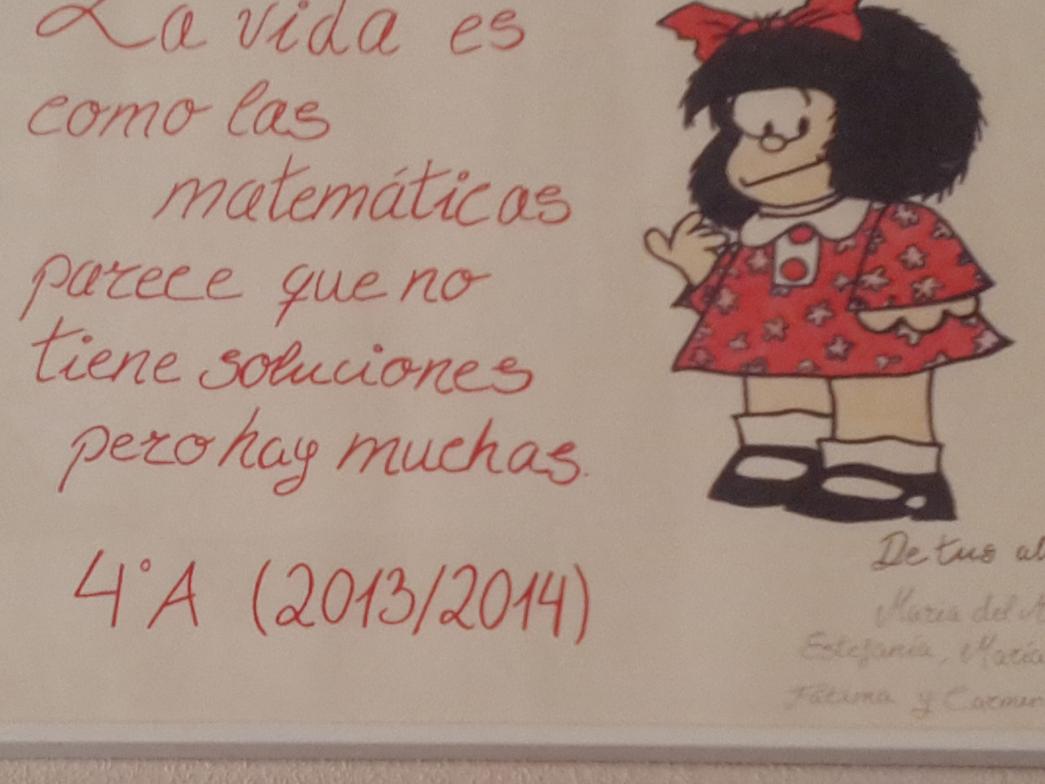 La vida es
como las
matemáticas
parece que no
tiene soluciones
pero hay muchas.
4°A (2013/2014)
De tus
María del
Estefanía, María
Fátima y Carmen